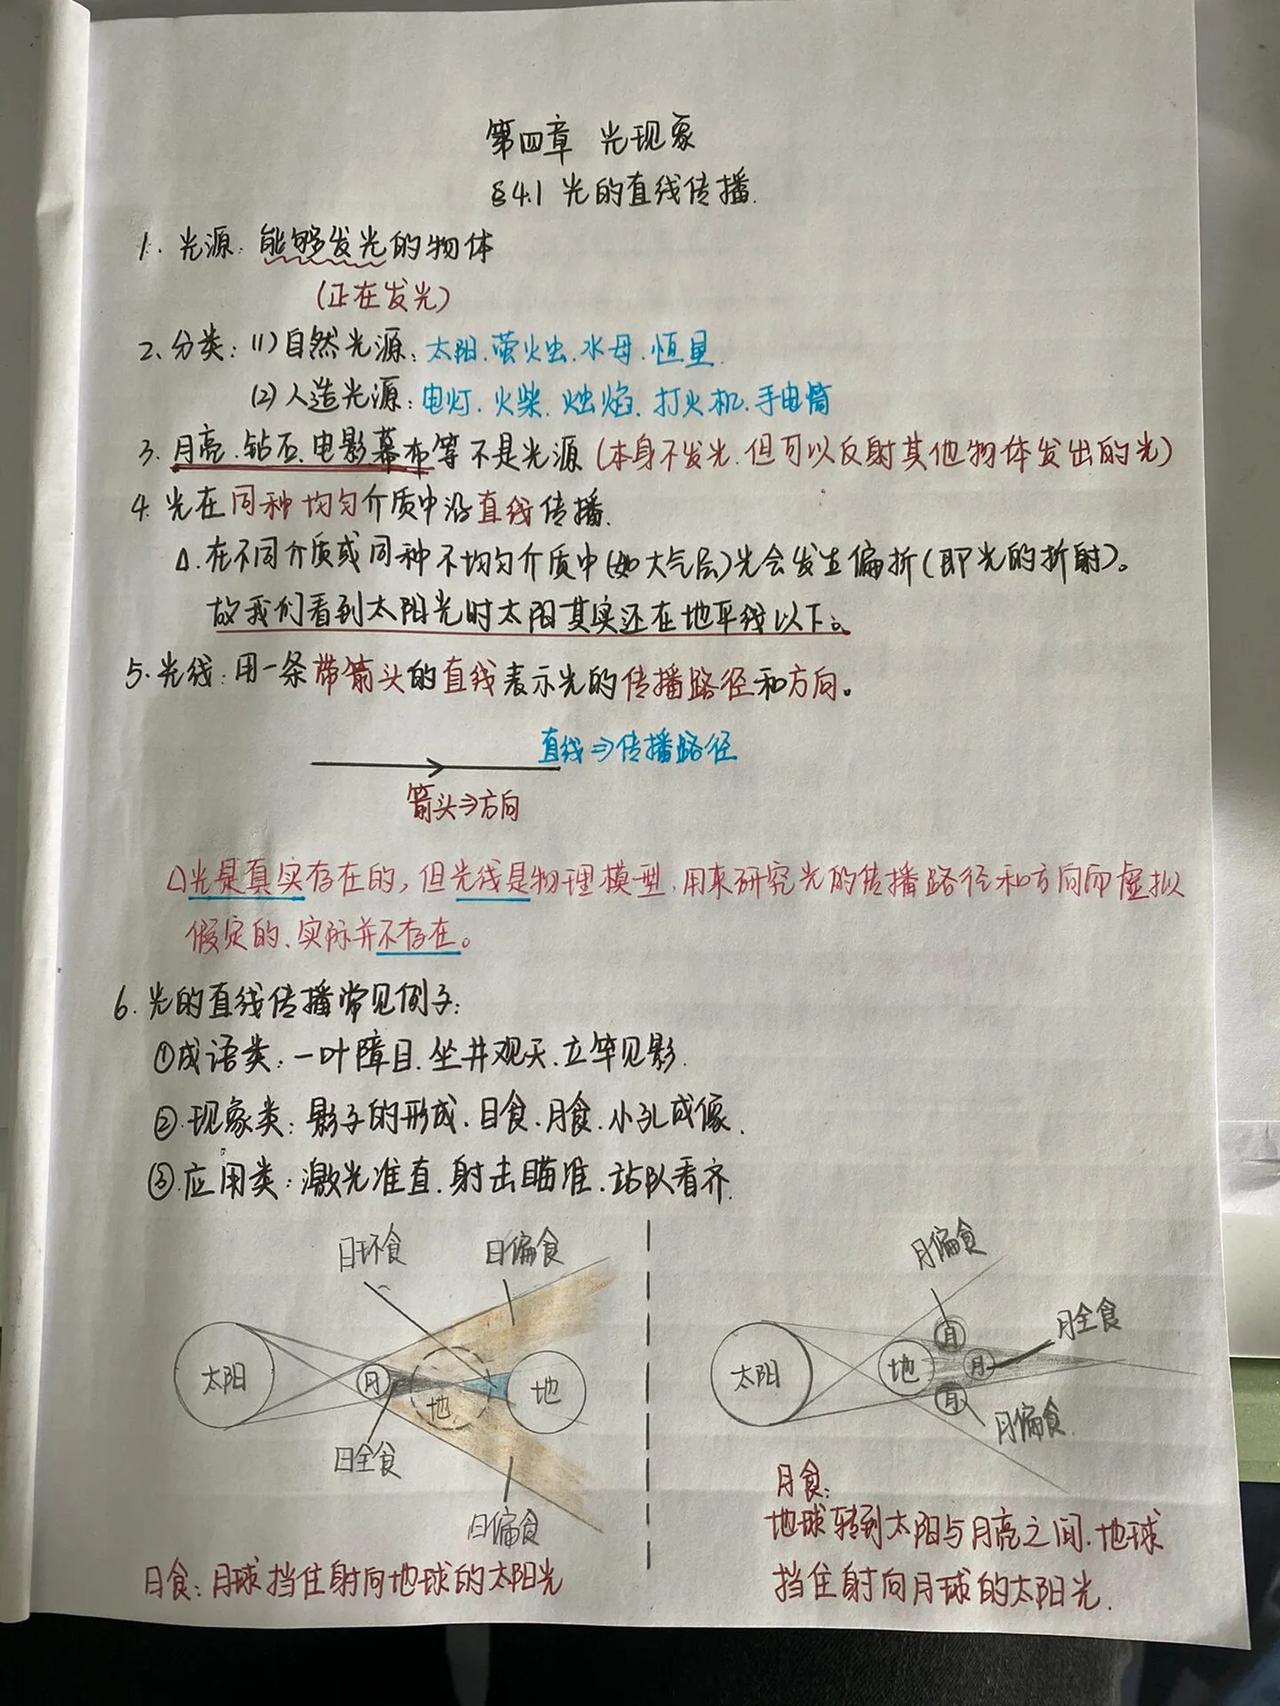 第四章 光现象
§4.1 光的直线传播.
1. 光源: 能够发光的物体
(正在发光)
2、分类: (1) 自然光源: 太阳、萤火虫、水母、恒星
(2) 人造光源: 电灯、火柴、烛焰、打火机、手电筒
3. 月亮、钻石、电影幕布等不是光源 (本身不发光,但可以反射其他物体发出的光)
4. 光在同种均匀介质中沿直线传播.
△.在不同介质或同种不均匀介质中(如大气层)光会发生偏折(即光的折射)。
故我们看到太阳光时太阳其实还在地平线以下。
5.光线: 用一条带箭头的直线表示光的传播路径和方向。
直线⇒传播路径
箭头⇒方向
△光是真实存在的,但光线是物理模型,用来研究光的传播路径和方向而虚拟
假定的、实际并不存在。
6. 光的直线传播常见例子:
①成语类: 一叶障目、坐井观天、立竿见影.
②.现象类: 影子的形成、日食、月食、小孔成像.
③.应用类: 激光准直、射击瞄准、站队看齐.
日环食 日偏食
太阳 月 地 地
日全食
日偏食
日食: 月球挡住射向地球的太阳光
月偏食
月全食
太阳 地 月 月 月
月偏食
月食:
地球转到太阳与月亮之间、地球
挡住射向月球的太阳光.